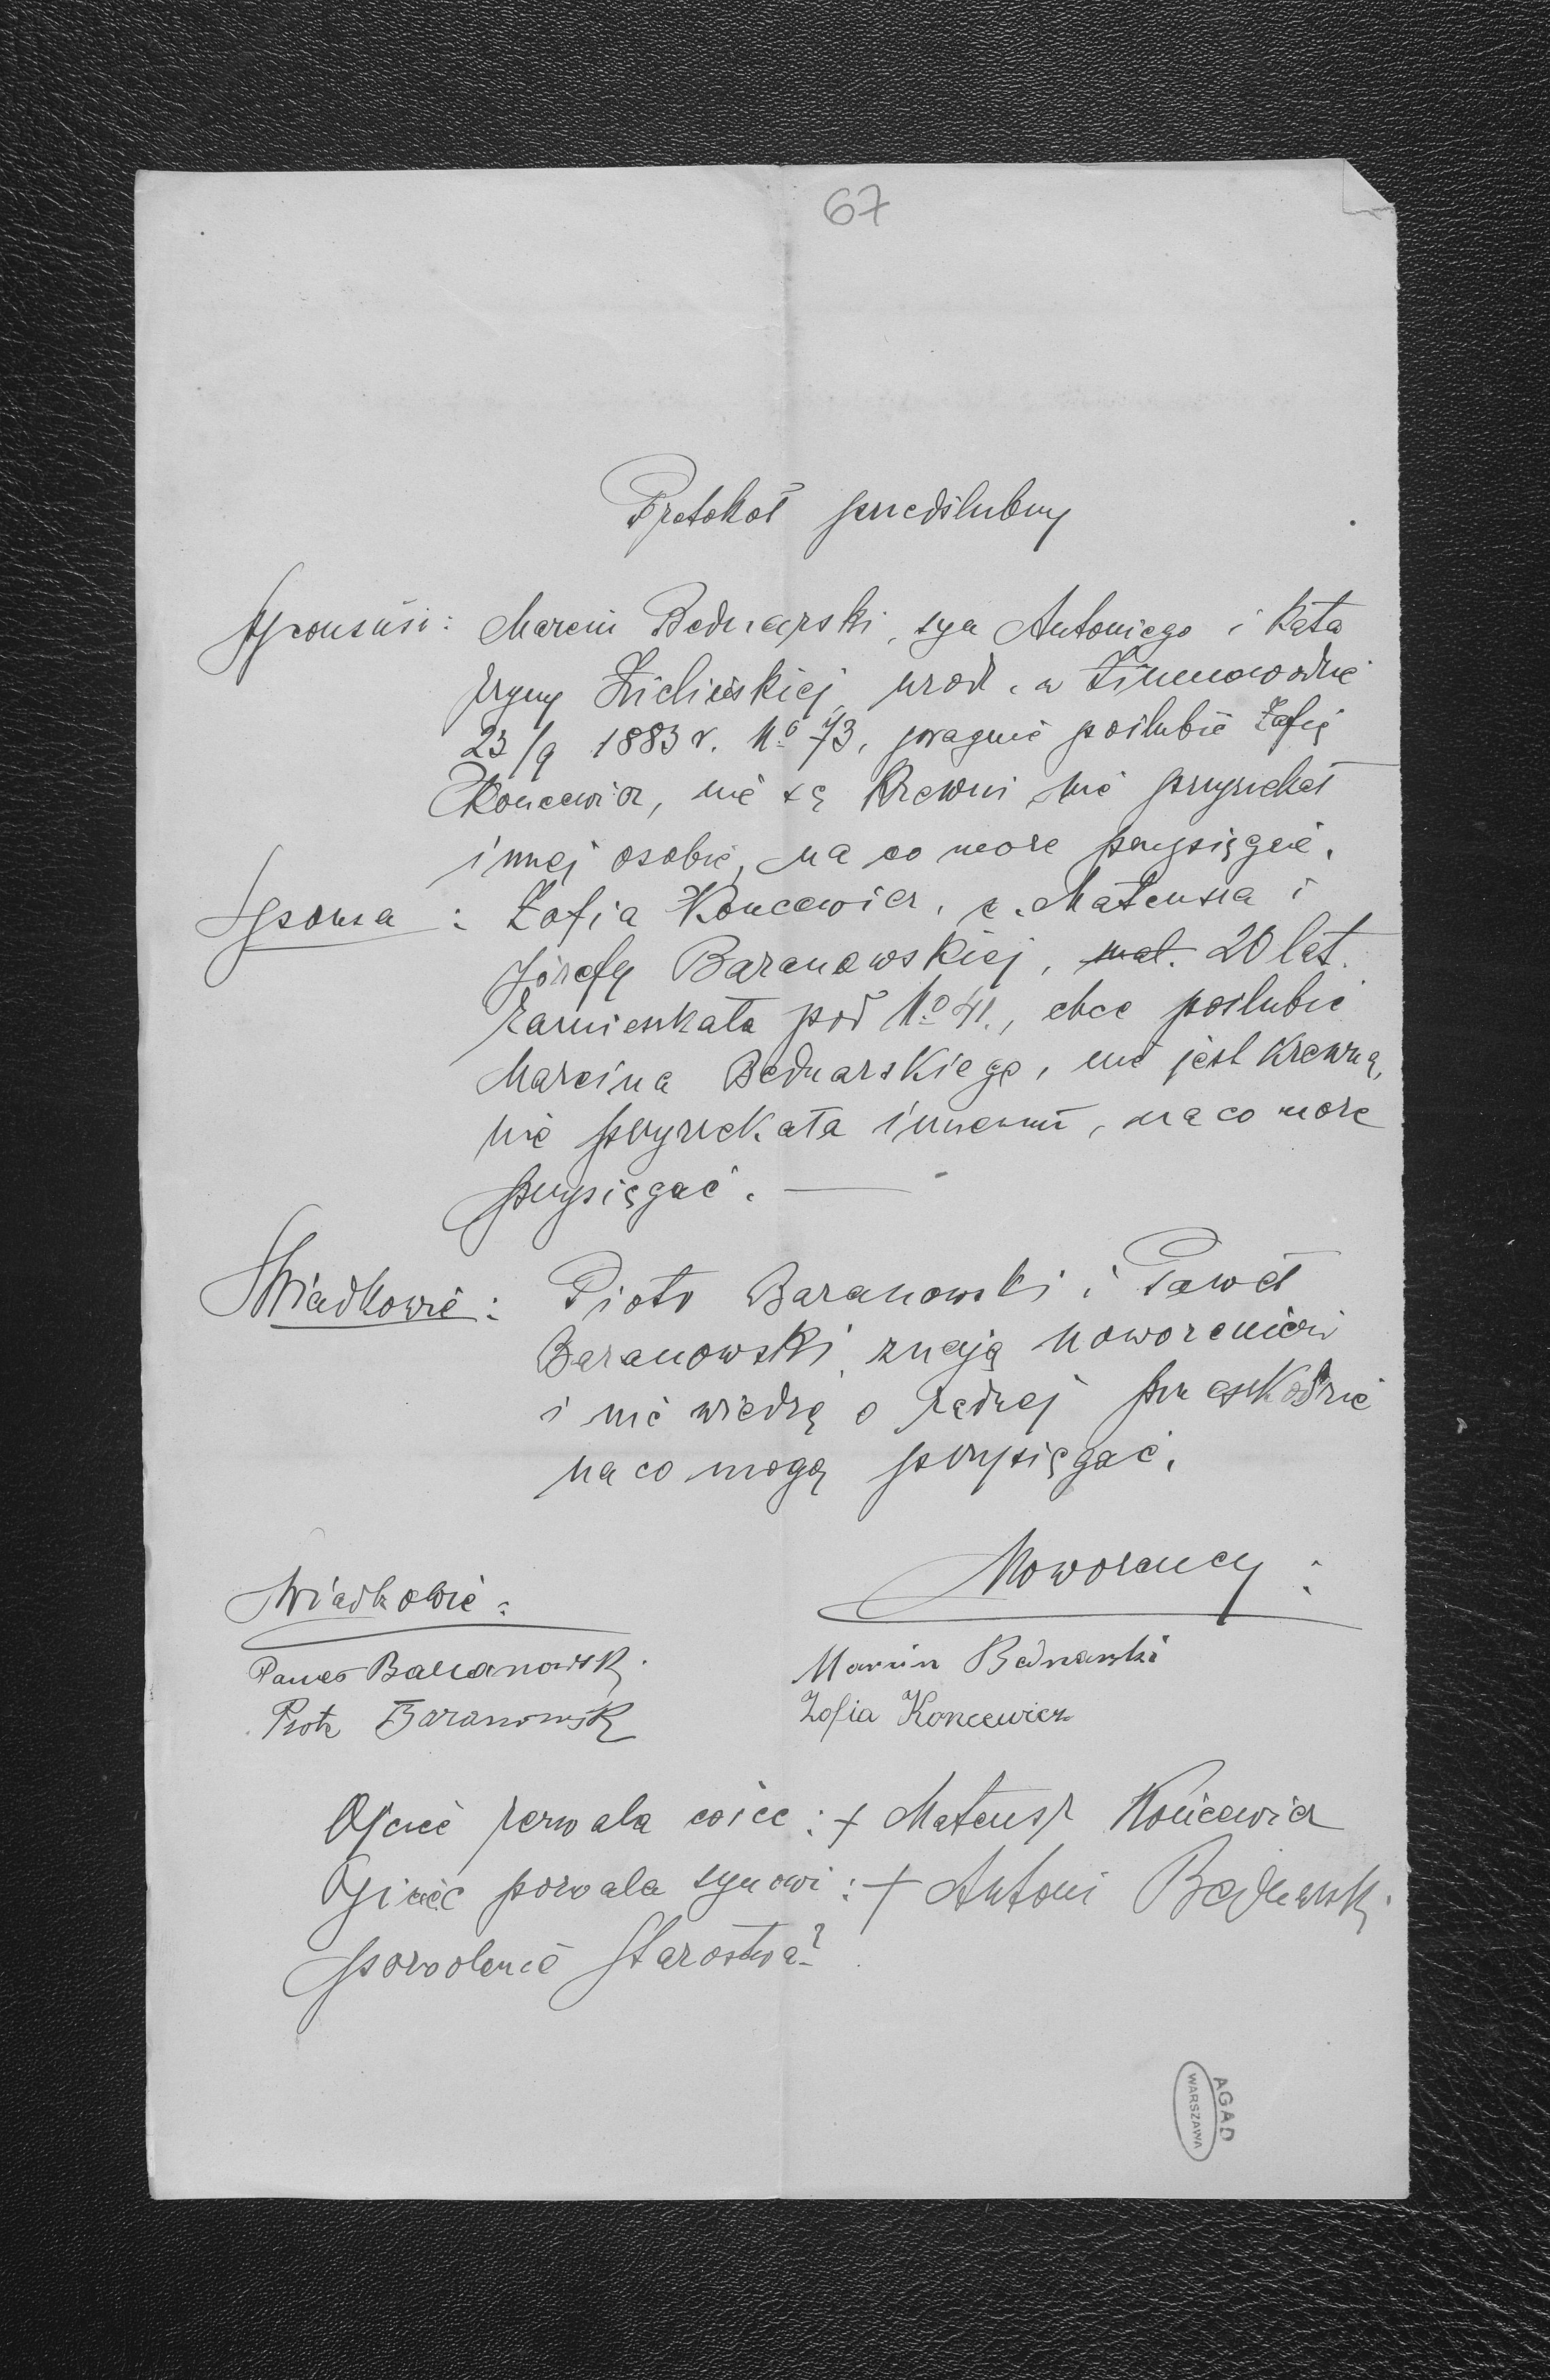 67
Protokoł przedślubny
Sponsus: Marcin Bednarski, syn Antoniego i Kata
rzyny Zielińskiej, urod. w Zimnowodzie
23/9 1883 r. No 73, pragnie poślubić Zofię
Koncewicz, nie są krewni nie przyrzekał
innej osobie, na co może przysięgać.
Sponsa : Zofia Koncewicz, c. Mateusza i
Józefy Baranowskiej, mał. 20 lat.
Zamieszkała pod No 41., chce poślubić
Marcina Bednarskiego, nie jest krewną,
nie przyrzekała innemu, na co może
przysięgać. —
Świadkowie: Piotr Baranowski i Paweł
Baranowski znają nowożeńców
i nie wiedzą o żadnej przeszkodzie
na co mogą przysięgać.
Nowożeńcy :
Świadkowie:
Paweł Baranowski
Marcin Bednarski
Piotr Baranowski
Zofia Koncewicz
Ojciec zezwala córce : + Mateusz Końcewicz
Ojciec pozwala synowi : + Antoni Bednarski
pozwolenie Starostwa?
AGAD
WARSZAWA